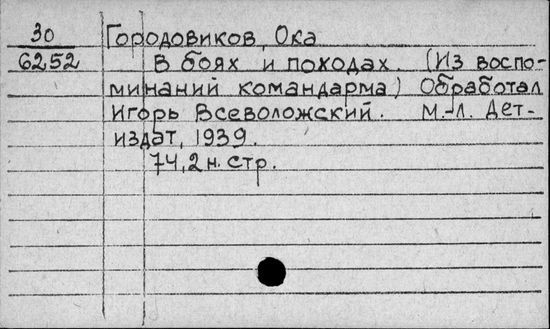 30
6252
Городовиков, Ока
В боях и походах. (Из воспо-
минаний командарма) Обработал
Игорь Всеволожский. М.-Л. Дет-
издат, 1939.
74, 2 н. стр.